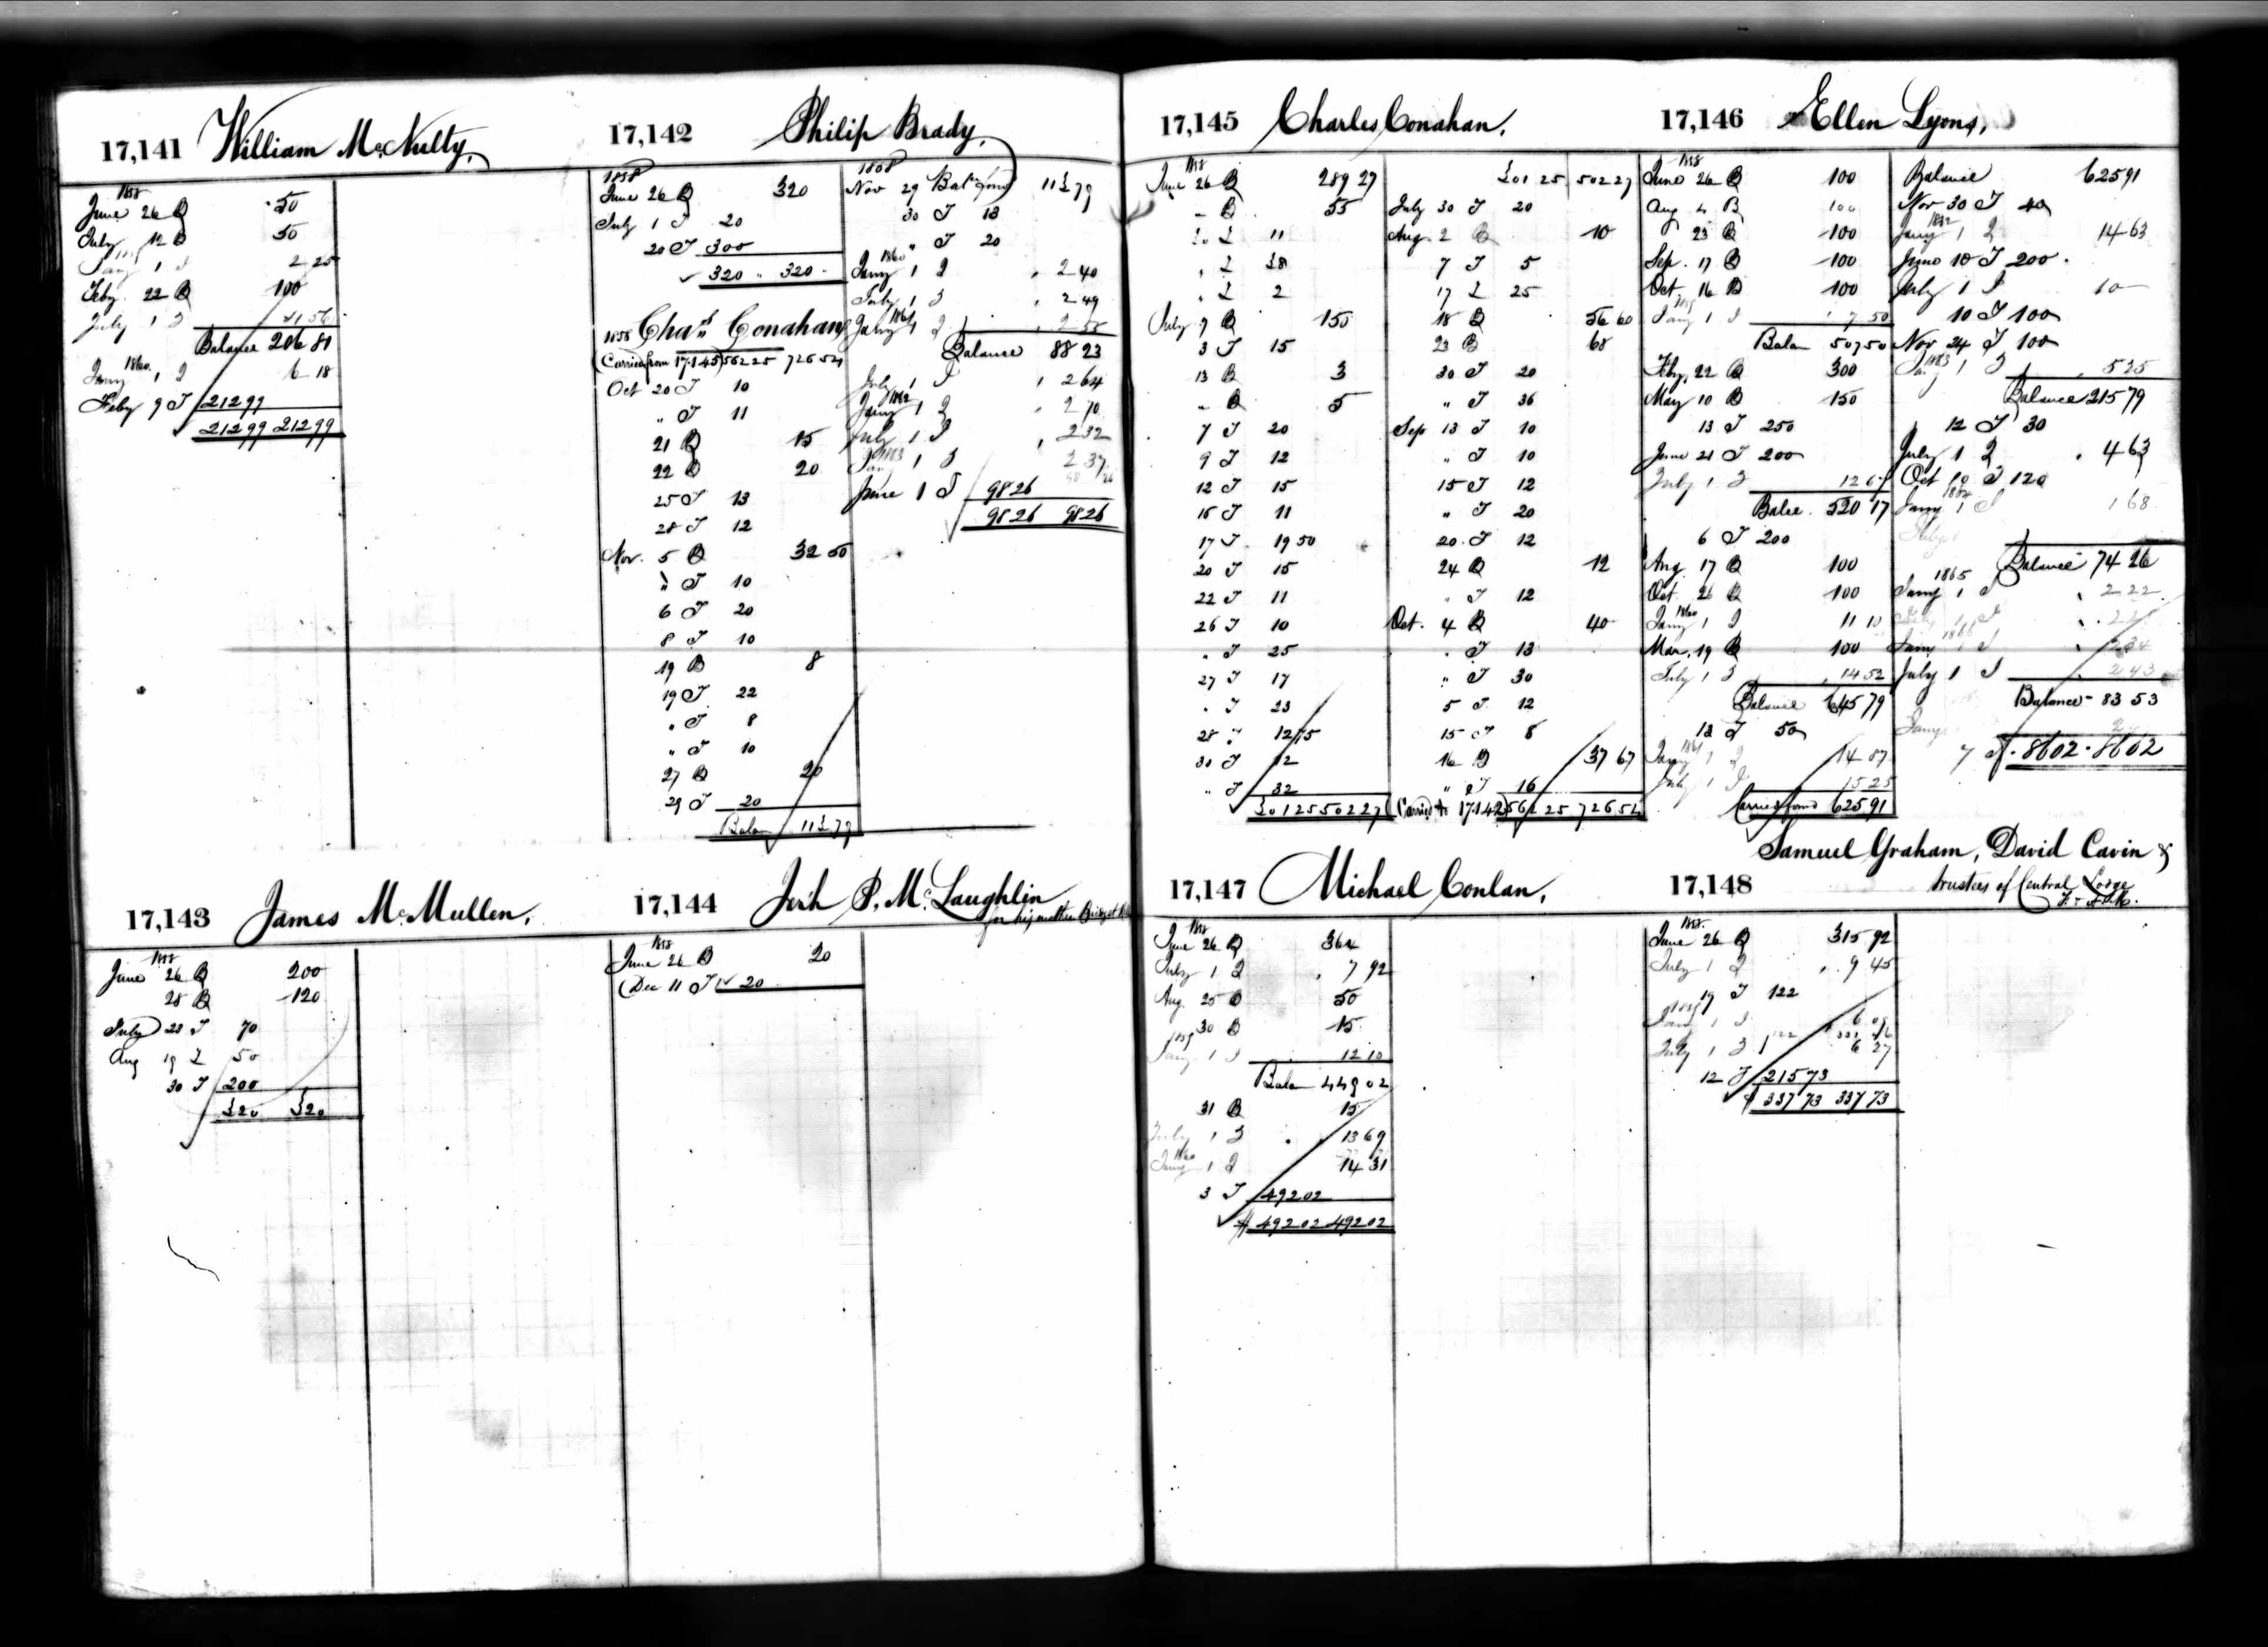 17,141 William McNulty,
1858
June 26 B 50
July 12 B 50
1859
Jany 1 I 2 25
Feby. 22 B 100
July 1 I 4 56
Balance 206 81
1860
Jany 1 I 6 18
Feby 9 T 212 99
212 99 212 99
17,142 Philip Brady,
1858
June 26 B 320
July 1 T 20
20 T 300
320 " 320
1858 Chas Conahan
(Carried from 17.145) 562 25 726 54
Oct 20 T 10
" T 11
21 B 15
22 B 20
25 T 13
28 T 12
Nov. 5 B 32 50
" T 10
6 T 20
8 T 10
19 B 8
19 T 22
" T 8
" T 10
27 B 20
29 T 20
Balan 113 79
1858
Nov 29 Bal 113 79
30 T 13
" T 20
1860
Jany 1 I 2 40
July 1 I 2 49
1861
Jany 1 I 2 55
Balance 88 23
July 1 I 2 64
1862
Jany 1 I 2 70
July 1 I 2 32
1863
Jany 1 I 2 37
June 1 T 98 26
98 26 98 26
17,143 James McMullen,
1858
June 26 B 200
28 B 120
July 23 T 70
Aug 19 T 50
30 T 200
320 320
17,144 P. McLaughlin
for his mother Bridget
1858
June 26 B 20
Dec 11 T 20
17,145 Charles Conahan,
1858
June 26 B 289 27
" B 55
30 T 11
" T 38
" T 2
July 9 B 150
3 T 15
13 B 3
" B 5
7 T 20
9 T 12
12 T 15
15 T 11
17 T 19 50
20 T 15
22 T 11
26 T 10
" T 25
27 T 17
" T 23
28 T 12 75
30 T 12
" T 32
301 25 502 27
301 25 502 27
July 30 T 20
Aug. 2 B 10
7 T 5
17 T 25
18 B 56 60
23 B 68
30 T 20
" T 36
Sep 13 T 10
" T 10
15 T 12
" T 20
20 T 12
24 B 12
" T 12
Oct. 4 B 40
" T 13
" T 30
5 T 12
15 T 8
16 B 37 67
" T 16
(Carried to 17.142) 562 25 726 54
17,146 Ellen Lyons,
1858
June 26 B 100
Aug 4 B 100
23 B 100
Sep. 17 B 100
Oct. 16 B 100
1859
Jany 1 I 7 50
Balan 507 50
Feby. 22 B 300
May 10 B 150
13 T 250
June 21 T 200
July 1 I 12 67
Balce. 520 17
6 T 200
Aug 17 B 100
Oct. 26 B 100
1860
Jany 1 I 11 10
Mar. 19 B 100
July 1 I 14 52
Balance 645 79
12 T 50
1861
Jany 1 I 14 87
July 1 I 15 25
Carried ford 625 91
Balance 625 91
Nov 30 T 40
1862
Jany 1 I 14 63
June 18 T 200
July 1 I 10
10 T 100
Nov 24 T 100
1863
Jany 1 I 5 25
Balance 215 79
12 T 30
July 1 I 4 63
Oct 19 T 120
1864
Jany 1 I 1 68
Balance 74 26
1865
Jany 1 I 2 22
1866
Jany 1 I 2 34
July 1 I 2 43
Balance 83 53
Jany
7 T 86 02 86 02
17,147 Michael Conlan,
1858
June 26 B 364
July 1 I 7 92
Aug. 25 B 50
30 B 15
1859
Jany 1 I 12 10
Bala 449 02
31 B 15
July 1 I 13 69
1860
Jany 1 I 14 31
3 T 492 02
$ 492 02 492 02
17,148 Samuel Graham, David Cavin &
trustees of Central Lodge
1858
June 26 B 315 92
July 1 I 9 45
19 T 122
1859
Jany 1 I 6 09
July 1 I 6 27
12 T 215 73
$ 337 73 337 73